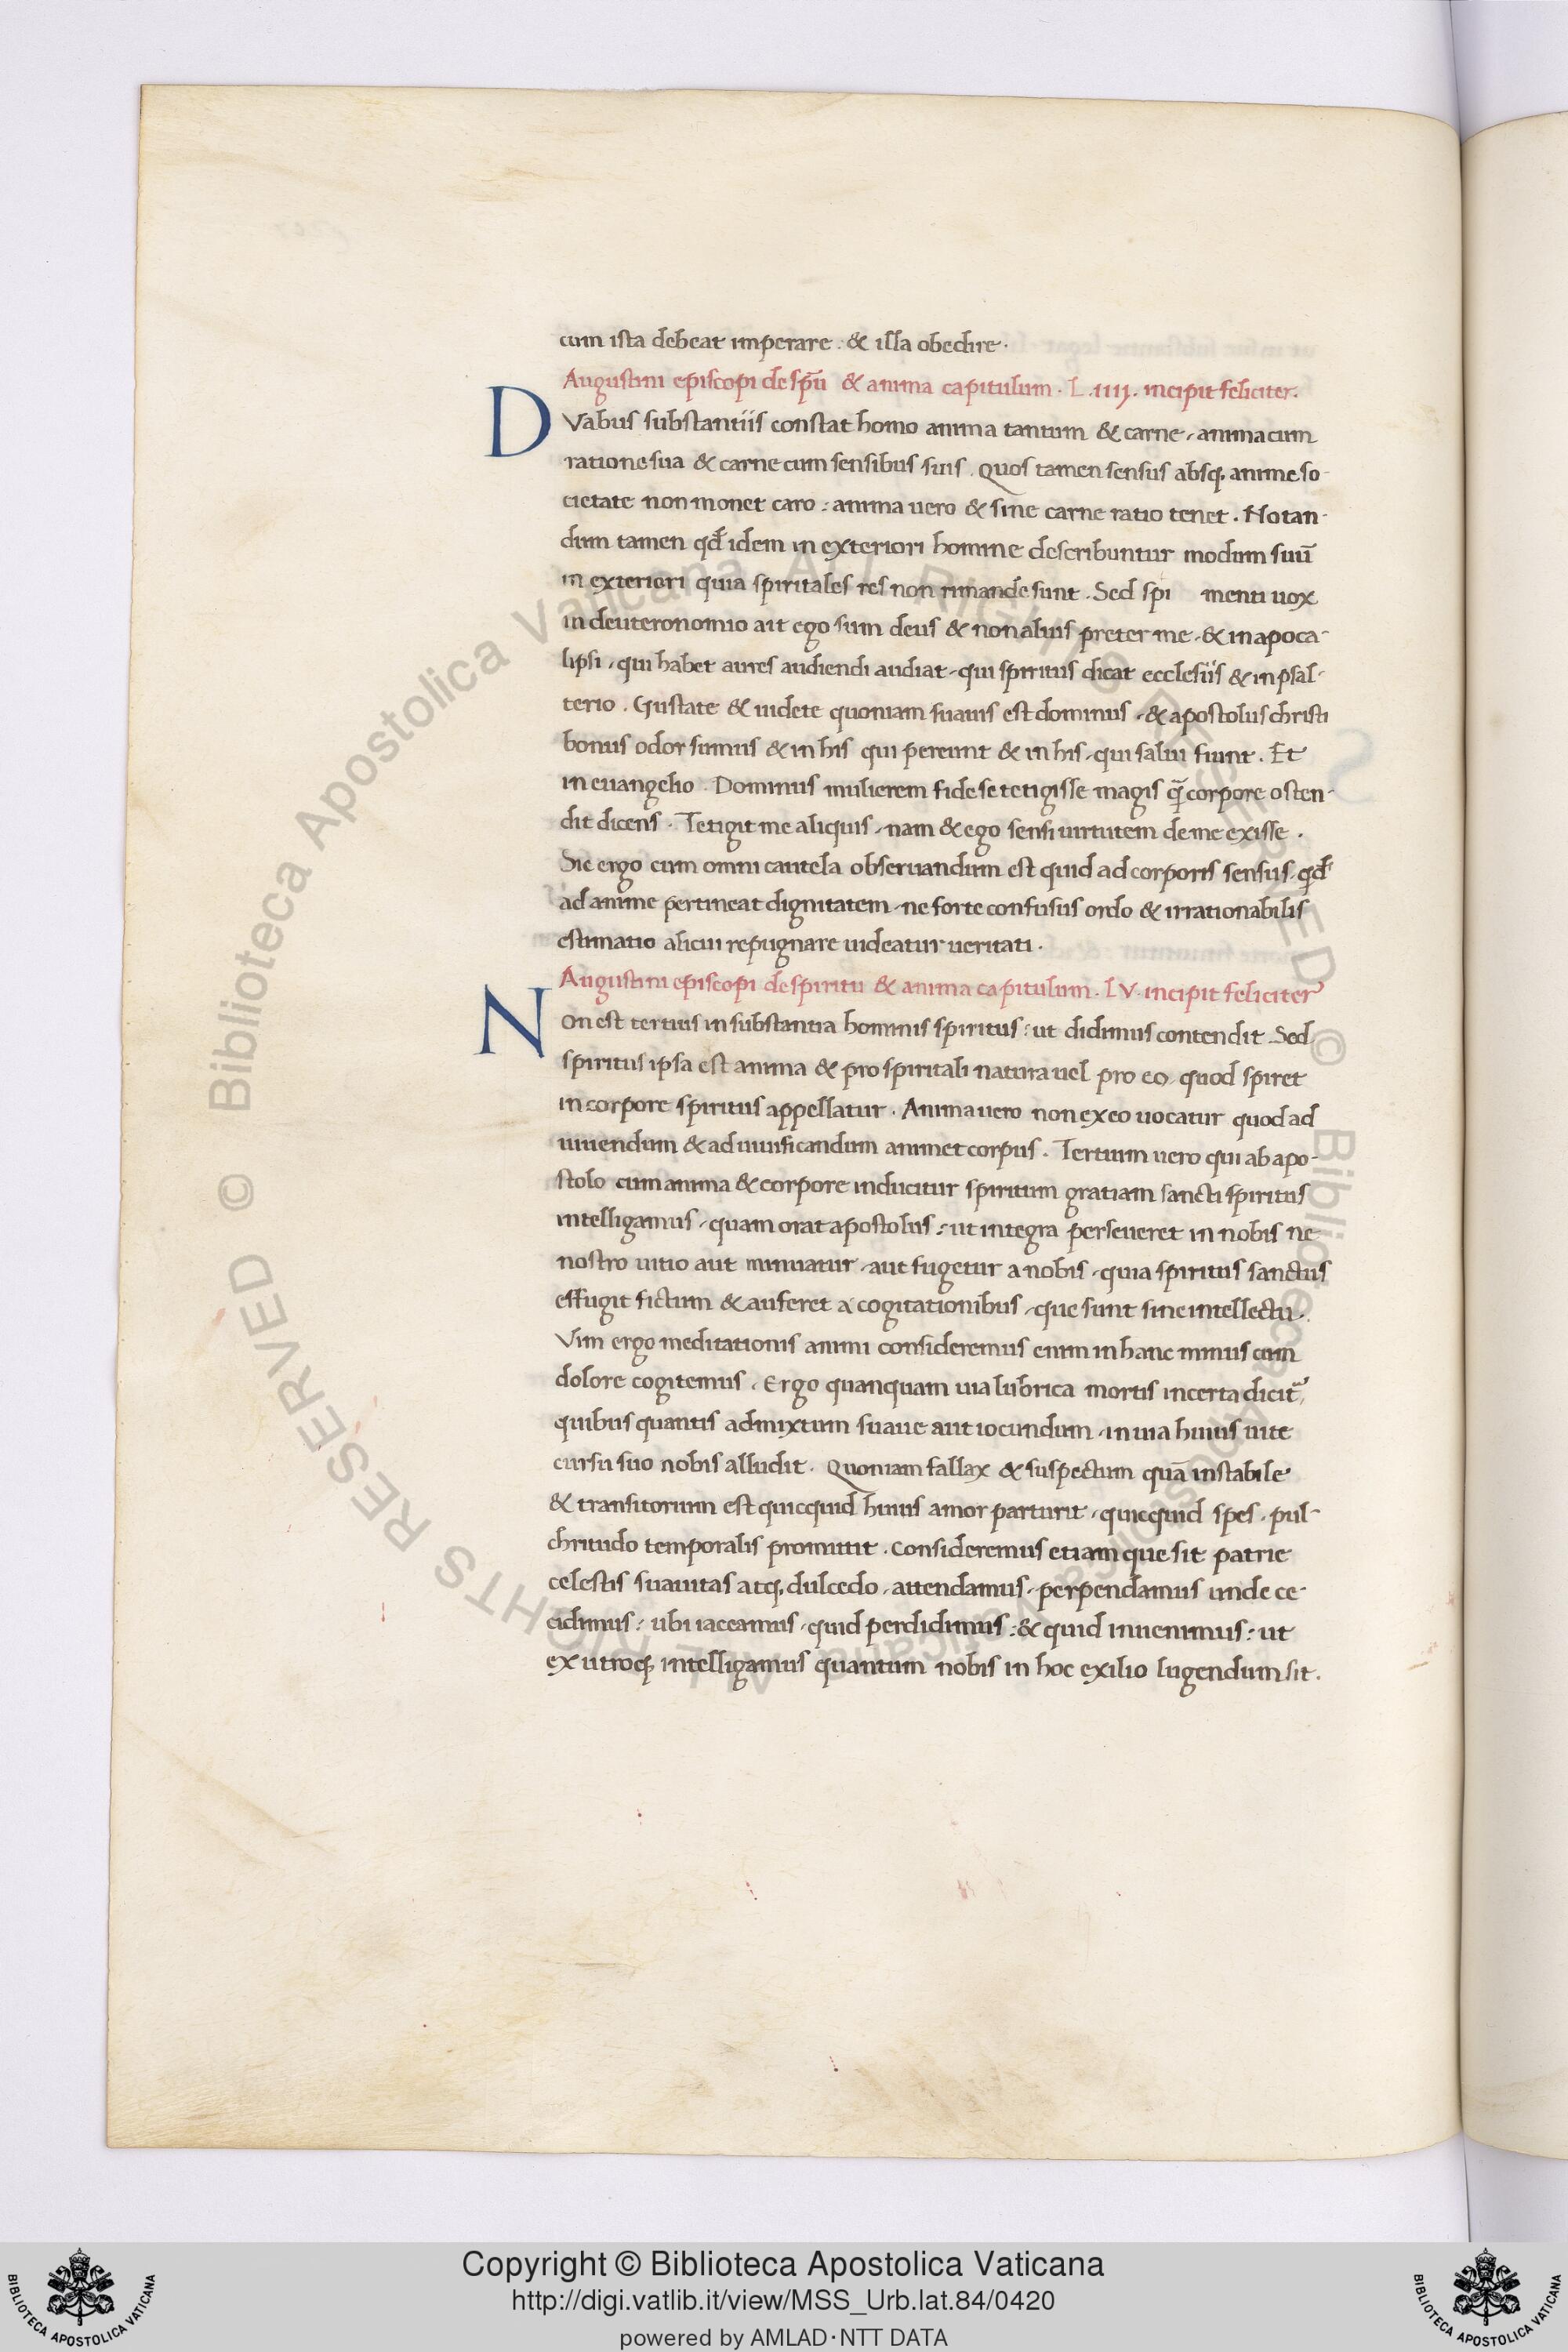 cum ista debeat imperare : & illa obedire ·
Augustini episcopi de spũ & anima capitulum · L .iiij. incipit feliciter.
DVabus substantiis constat homo anima tantum & carne , anima cum
ratione sua & carne cum sensibus suis . Quos tamen sensus absq, anime so-
cietate non monet caro : anima uero & sine carne ratio tenet . Notan-
dum tamen qđ idem in exteriori homine describuntur modum suũ
in exteriori quia spiritales res non rimande sunt . Sed spi menti uox
in deuteronomio ait ego sum deus & non alius preter me , & in apoca-
lipsi , qui habet aures audiendi audiat , qui spiritus dicat ecclesiis & in psal-
terio . Gustate & uidete quoniam suauis est dominus , & apostolus christi
bonus odor sumus & in his qui pereunt & in his , qui salui fiunt . Et
in euangelio . Dominus mulierem fide se tetigisse magis q̃ corpore osten-
dit dicens . Tetigit me aliquis , nam & ego sensi uirtutem de me exisse .
Sic ergo cum omni cautela obseruandum est quid ad corporis sensus , qđ
ad anime pertineat dignitatem , ne forte confusus ordo & irrationabilis
estimatio alicui repugnare uideatur ueritati .
Augustini episcopi de spiritu & anima capitulum . LV. incipit feliciter
Non est tertius in substantia hominis spiritus : ut didimus contendit . Sed
spiritus ipsa est anima & pro spiritali natura uel pro eo , quod spiret
in corpore spiritus appellatur . Anima uero non ex eo uocatur quod ad
uiuendum & ad uiuificandum animet corpus . Tertium uero qui ab apo-
stolo cum anima & corpore inducitur spiritum gratiam sancti spiritus
intelligamus , quam orat apostolus : ut integra perseueret in nobis ne
nostro uitio aut minuatur , aut fugetur a nobis , quia spiritus sanctus
effugit fictum & auferet a cogitationibus , que sunt sine intellectu .
Vim ergo meditationis animi consideremus enim in hanc minus cum
dolore cogitemus . Ergo quanquam uia lubrica mortis incerta dicit᷑,
quibus quantis admixtum suaue aut iocundum , in uia huius uite
cursu suo nobis alludit . Quoniam fallax & suspectum quã instabile
& transitorium est quicquid huius amor parturit , quicquid spes , pul-
chritudo temporalis promittit . consideremus etiam que sit patrie
celestis suauitas atq, dulcedo , attendamus , perpendamus unde ce-
cidimus : ubi iaceamus , quid perdidimus : & quid inuenimus : ut
ex utroq, intelligamus quantum nobis in hoc exilio lugendum sit .
© Biblioteca Apostolica Vaticana ALL RIGHTS RESERVED © Biblioteca Apostolica Vaticana ALL RIGHTS RESERVED
Copyright © Biblioteca Apostolica Vaticana
http://digi.vatlib.it/view/MSS_Urb.lat.84/0420
powered by AMLAD·NTT DATA
BIBLIOTECA APOSTOLICA VATICANA
BIBLIOTECA APOSTOLICA VATICANA